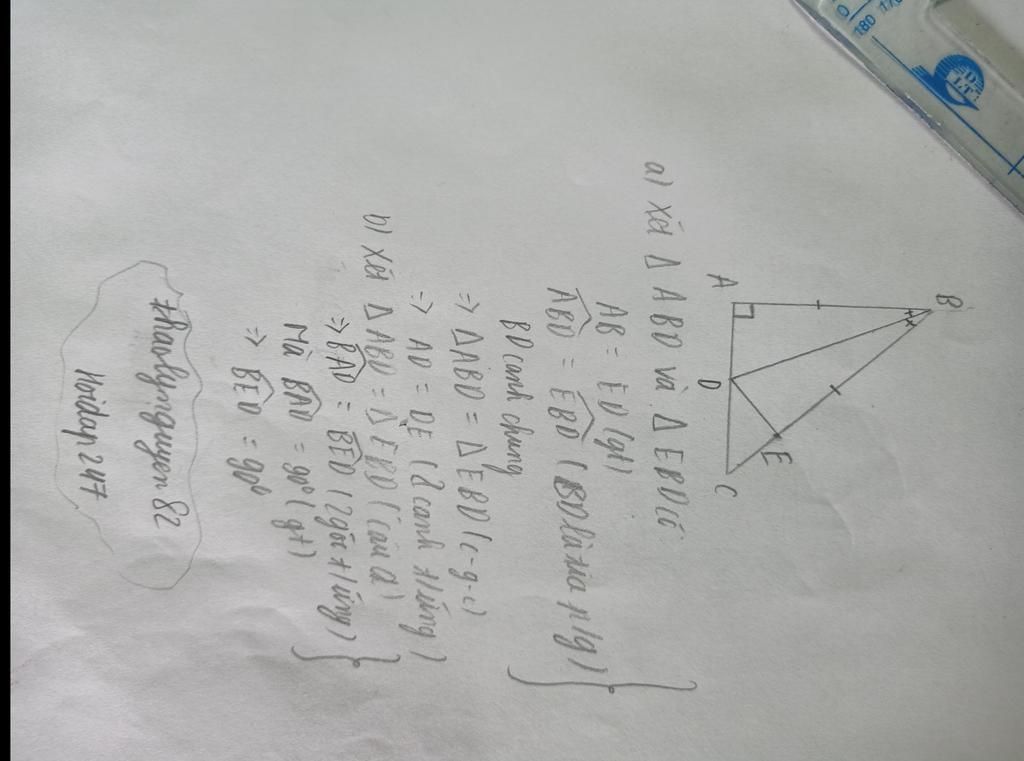 B
A
D
E
C
a) Xét Δ ABD và Δ EBD có
AB = ED (gt)
ABD = EBD (BD là tia p/g)
BD cạnh chung
=> ΔABD = ΔEBD (c-g-c)
=> AD = DE (2 cạnh t/ứng)
b) Xét ΔABD = ΔEBD (câu a)
=> BAD = BED (2 góc t/ứng)
Mà BAD = 90° (gt)
=> BED = 90°
thaolynguyen82
Hoidap247
180
170
0